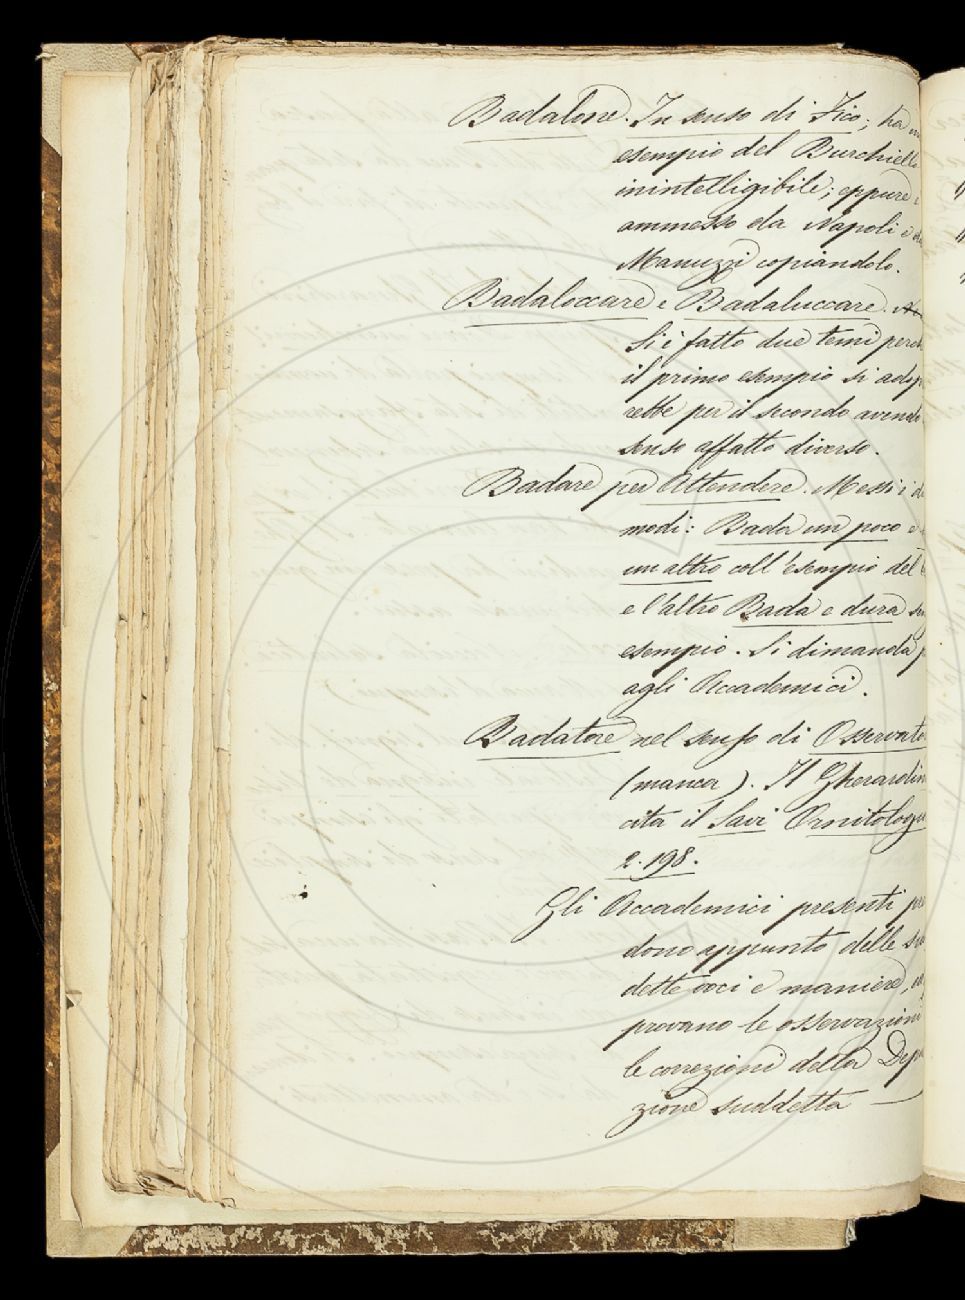 Badalone. In senso di Fico; ha
esempio del Burchiello
inintelligibile; eppure
ammesso da Napoli e
Manuzzi copiandolo.
Badaloccare e Badaluccare.
Si è fatto due temi perch
il primo esempio si adop
rebbe per il secondo avendo
senso affatto diverso.
Badare per Attendere. Messi i
modi: Bada un poco e
un altro coll'esempio del
e l'altro Bada e dura
esempio. Si dimanda
agli Accademici.
Badatore nel senso di Osservato
(manca). Il Gherardin
cita il Savi Ornitolog
2. 198.
Gli Accademici presenti
dono appunto delle
dette voci e maniere,
provano le osservazioni
le correzioni della Dep
zione suddetta